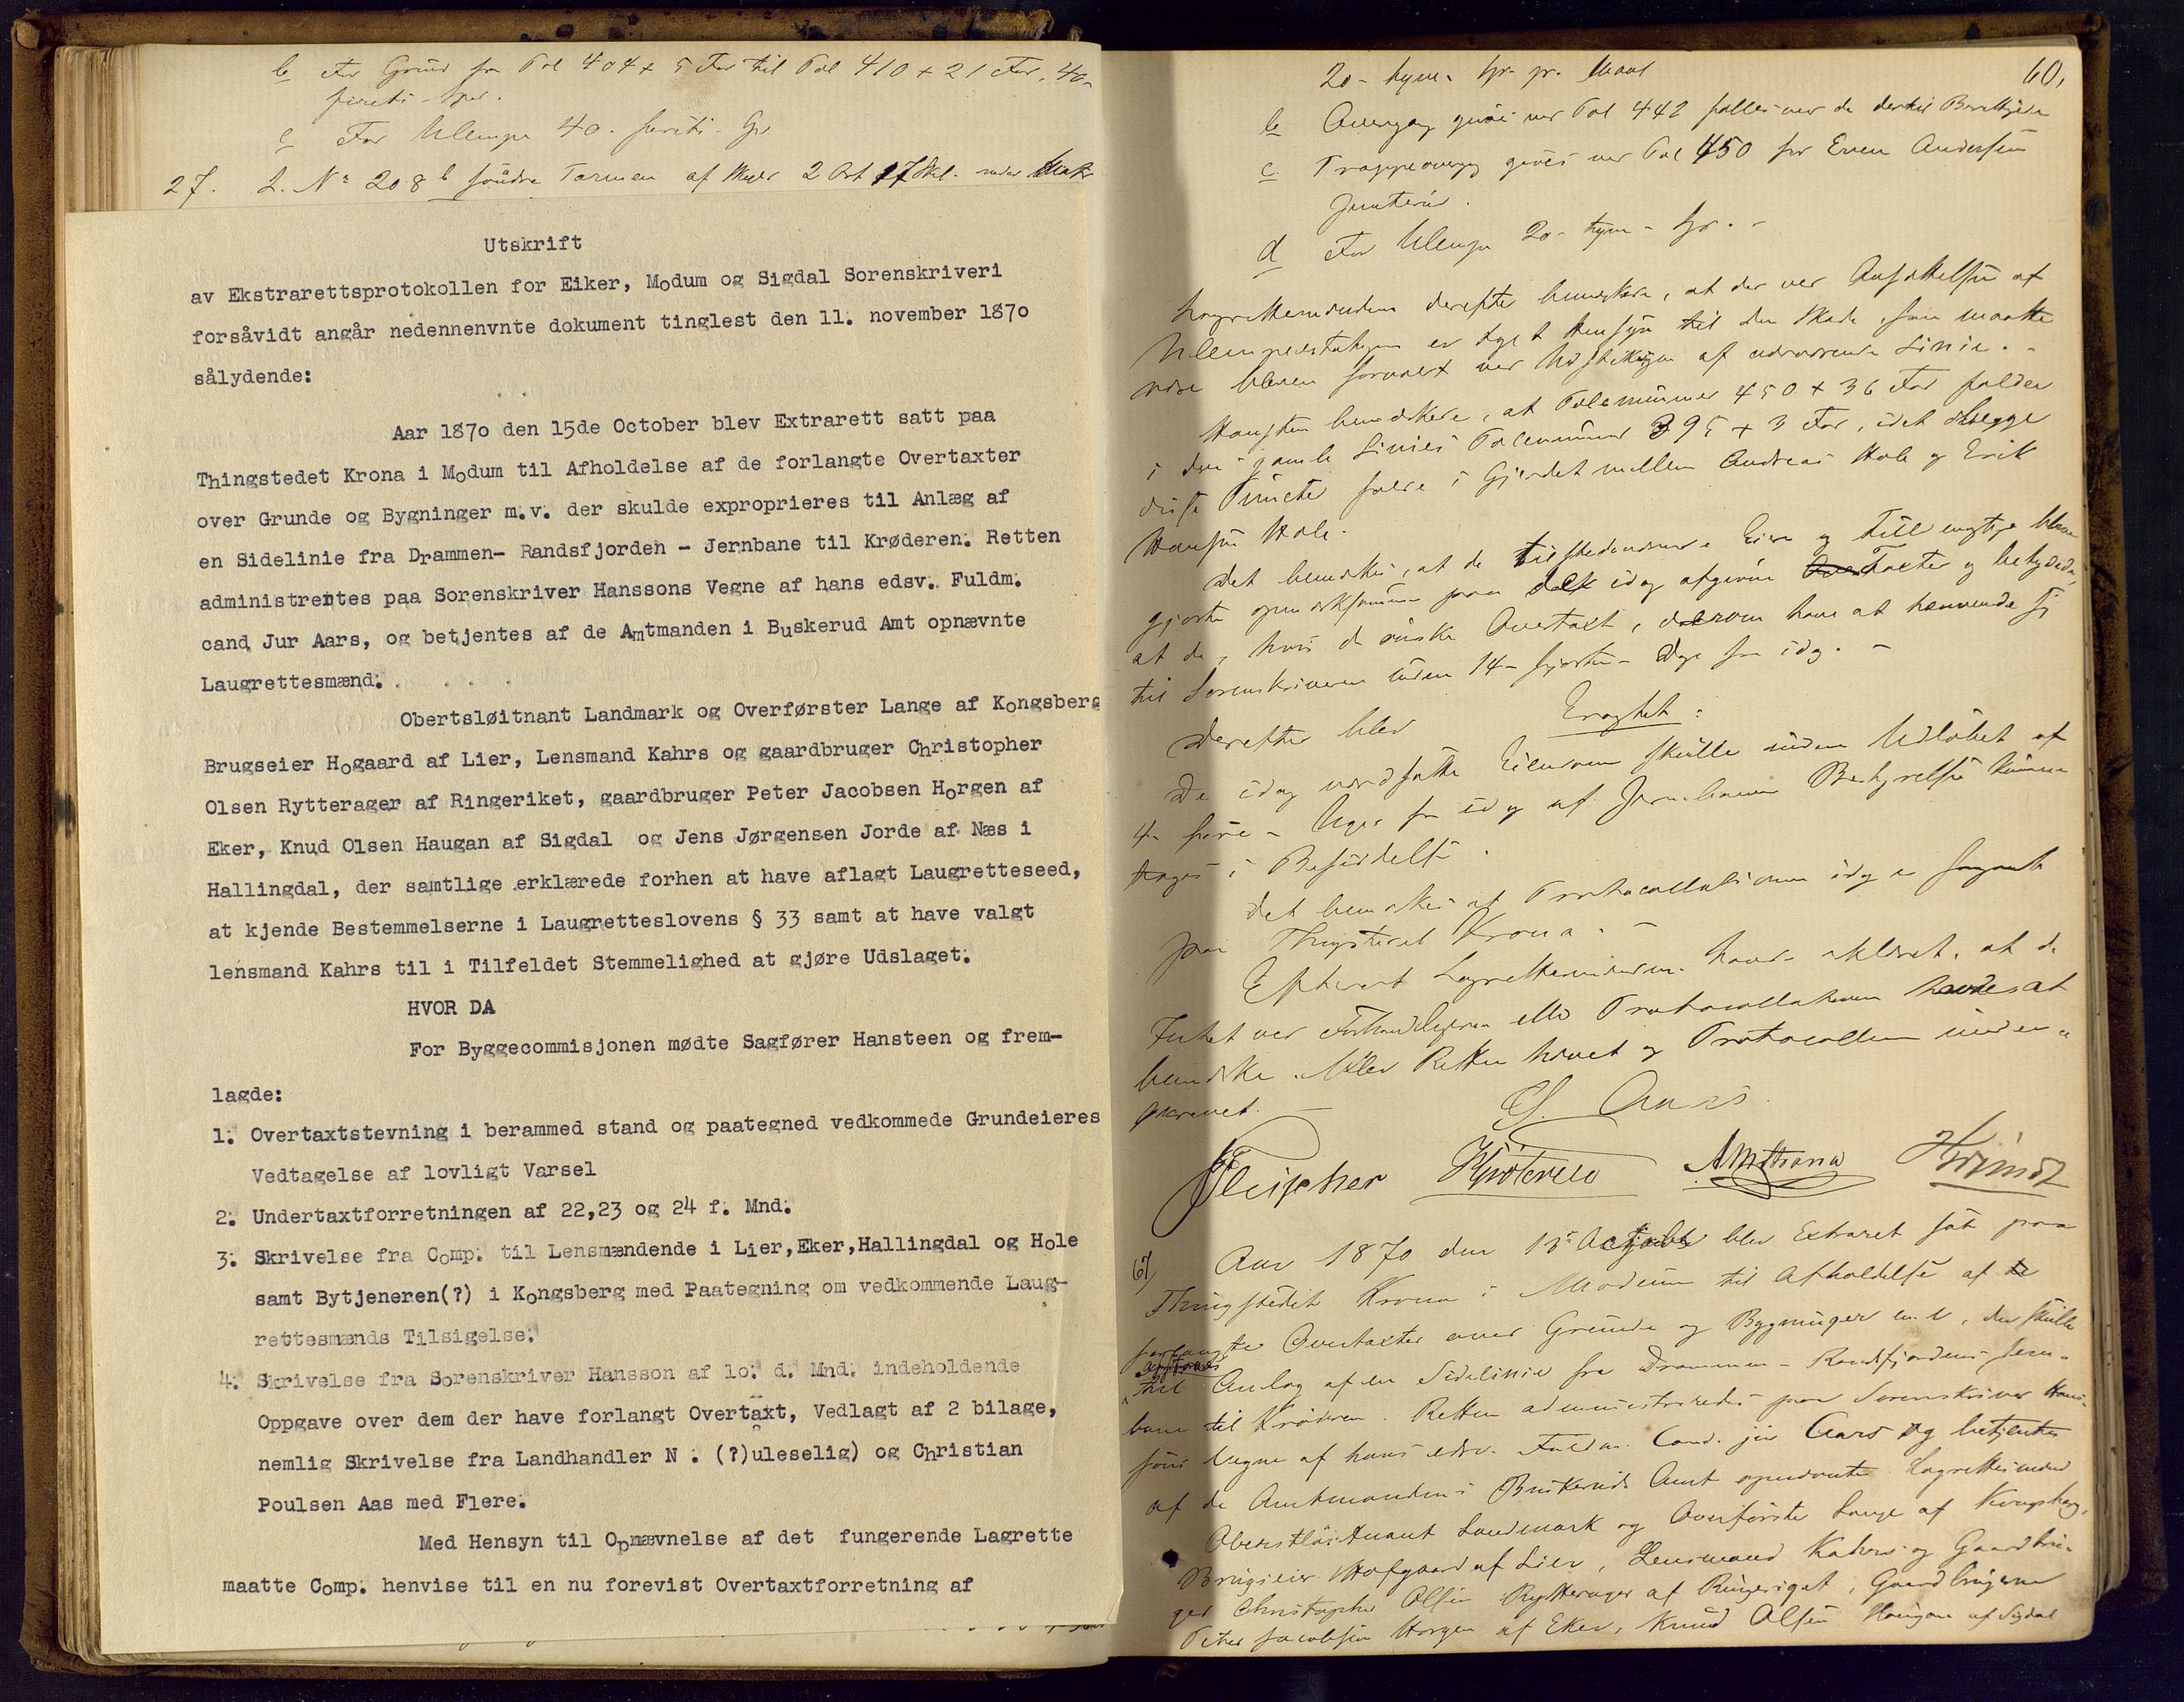 b For Grund fra Pæl 404 + 5 For til Pæl 410 + 21 For, 40-
firti - Spd.
c For Ulempe 40. firti. Sp
27. L. Nº 208 b søndre Tormen af Skyld 2 Ort 17 Skl.
Utskrift
av Ekstrarettsprotokollen for Eiker, Modum og Sigdal Sorenskriveri
forsåvidt angår nedennenvnte dokument tinglest den 11. november 1870
sålydende:
Aar 1870 den 15de October blev Extrarett satt paa
Thingstedet Krona i Modum til Afholdelse af de forlangte Overtaxter
over Grunde og Bygninger m.v. der skulde exproprieres til Anlæg af
en Sidelinie fra Drammen- Randsfjorden - Jernbane til Krøderen. Retten
administrertes paa Sorenskriver Hanssons Vegne af hans edsv. Fuldm.
cand Jur Aars, og betjentes af de Amtmanden i Buskerud Amt opnævnte
Laugrettesmænd.
Obertsløitnant Landmark og Overførster Lange af Kongsberg
Brugseier Hogaard af Lier, Lensmand Kahrs og gaardbruger Christopher
Olsen Rytterager af Ringeriket, gaardbruger Peter Jacobsen Horgen af
Eker, Knud Olsen Haugan af Sigdal og Jens Jørgensen Jorde af Næs i
Hallingdal, der samtlige erklærede forhen at have aflagt Laugretteseed,
at kjende Bestemmelserne i Laugretteslovens § 33 samt at have valgt
lensmand Kahrs til i Tilfeldet Stemmelighed at gjøre Udslaget.
HVOR DA
For Byggecommisjonen mødte Sagfører Hansteen og frem-
lagde:
1. Overtaxtstevning i berammed stand og paategned vedkommede Grundeieres
Vedtagelse af lovligt Varsel
2. Undertaxtforretningen af 22,23 og 24 f. Mnd.
3. Skrivelse fra Comp. til Lensmændende i Lier,Eker,Hallingdal og Hole
samt Bytjeneren(?) i Kongsberg med Paategning om vedkommende Laug-
rettesmænds Tilsigelse.
4. Skrivelse fra Sorenskriver Hansson af 10. d. Mnd. indeholdende
Oppgave over dem der have forlangt Overtaxt, Vedlagt af 2 bilage,
nemlig Skrivelse fra Landhandler N . (?)uleselig) og Christian
Poulsen Aas med Flere.
Med Hensyn til Opnævnelse af det fungerende Lagrette
maatte Comp. henvise til en nu forevist Overtaxtforretning af
60,
20- tyve- Sp. pr. Maal
b Overgang gives ved Pæl 442 fælles ved de dertil Berettigede
c Trappeovergang gives ved Pæl 450 for Even Andersen
d For Ulempe 20- tyve- Sp. -
Laugrettemændene derefter bemærkede, at der ved Ansættelsen af
Ulempeerstatningen er taget Hensyn til den Skade som maatte
være bleven forvoldt ved Udstikningen af nuværende Linie. -
Hansteen bemærkede, at Pælenummer 450 + 36 For falder
i den gamle Linies Pælenummer 395 + 3 For, idet begge
disse Puncter falde i Gjerdet mellem Andreas Hole og Erik
Hansen Hole.
Det bemærkes, at de tilstedeværende Eiere og Fuldmægtige bleve
gjorte opmærksomme paa den idag afgivne Taxter og betydede,
at de, hvis de ønske Overtaxt, derom have at henvende sig
til Sorenskriveren inden 14- fjorten- Dage fra idag. -
Derefter blev Eragtet:
De idag værdsatte Eiendomme skulle inden Udløbet af
4- fire - Uger fra idag af Jernbanens Bestyrelse kunne
tages i Besiddelse.
Det bemærkes at Protocollationen idag er foregaaet
paa Thingstedet Krona. -
Efterat Lagrettemændene havde erklæret, at de
Intet ved Forhandlingen eller Protocollationen havde at
bemærke. blev Retten hævet og Protocollen under-
skrevet. -
Aars.
Fleischer
67, Aar 1870 den 15 October blev Extraret sat paa
Thingstedet Krona i Modum til Afholdelse af de
forlangte Overtaxter over Grunde og Bygninger m.v, der skulle
afstaaes
til Anlæg af en Sidelinie fra Drammen - Randsfjordens Jern-
bane til Krøderen. Retten administreredes paa Sorenskriver Hans-
sons Vegne af hans edsv. Fuldm. Cand. jur Aars og betjentes
af de Amtmanden i Buskeruds Amt opnævnte Lagrettesmænd
Oberstløitnant Landmark og Overførster Lange af Kongsberg,
Brugseier Hofgaard af Lier, Lensmand Kahrs og Gaardbru-
ger Christopher Olsen Rytterager af Ringeriget, Gaardbrugerne
Peter Jacobsen Horgen af Eker, Knud Olsen Haugan af Sigdal